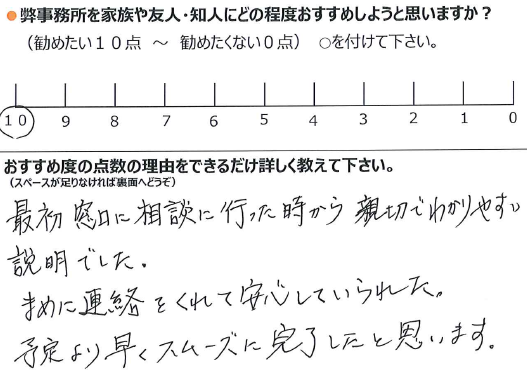 ●弊事務所を家族や友人・知人にどの程度おすすめしようと思いますか？
（勧めたい１０点　～　勧めたくない０点）　○を付けて下さい。
10 9 8 7 6 5 4 3 2 1 0
おすすめ度の点数の理由をできるだけ詳しく教えて下さい。
（スペースが足りなければ裏面へどうぞ）
最初窓口に相談に行った時から親切でわかりやすい
説明でした。
まめに連絡をくれて安心していられた。
予定より早くスムーズに完了したと思います。